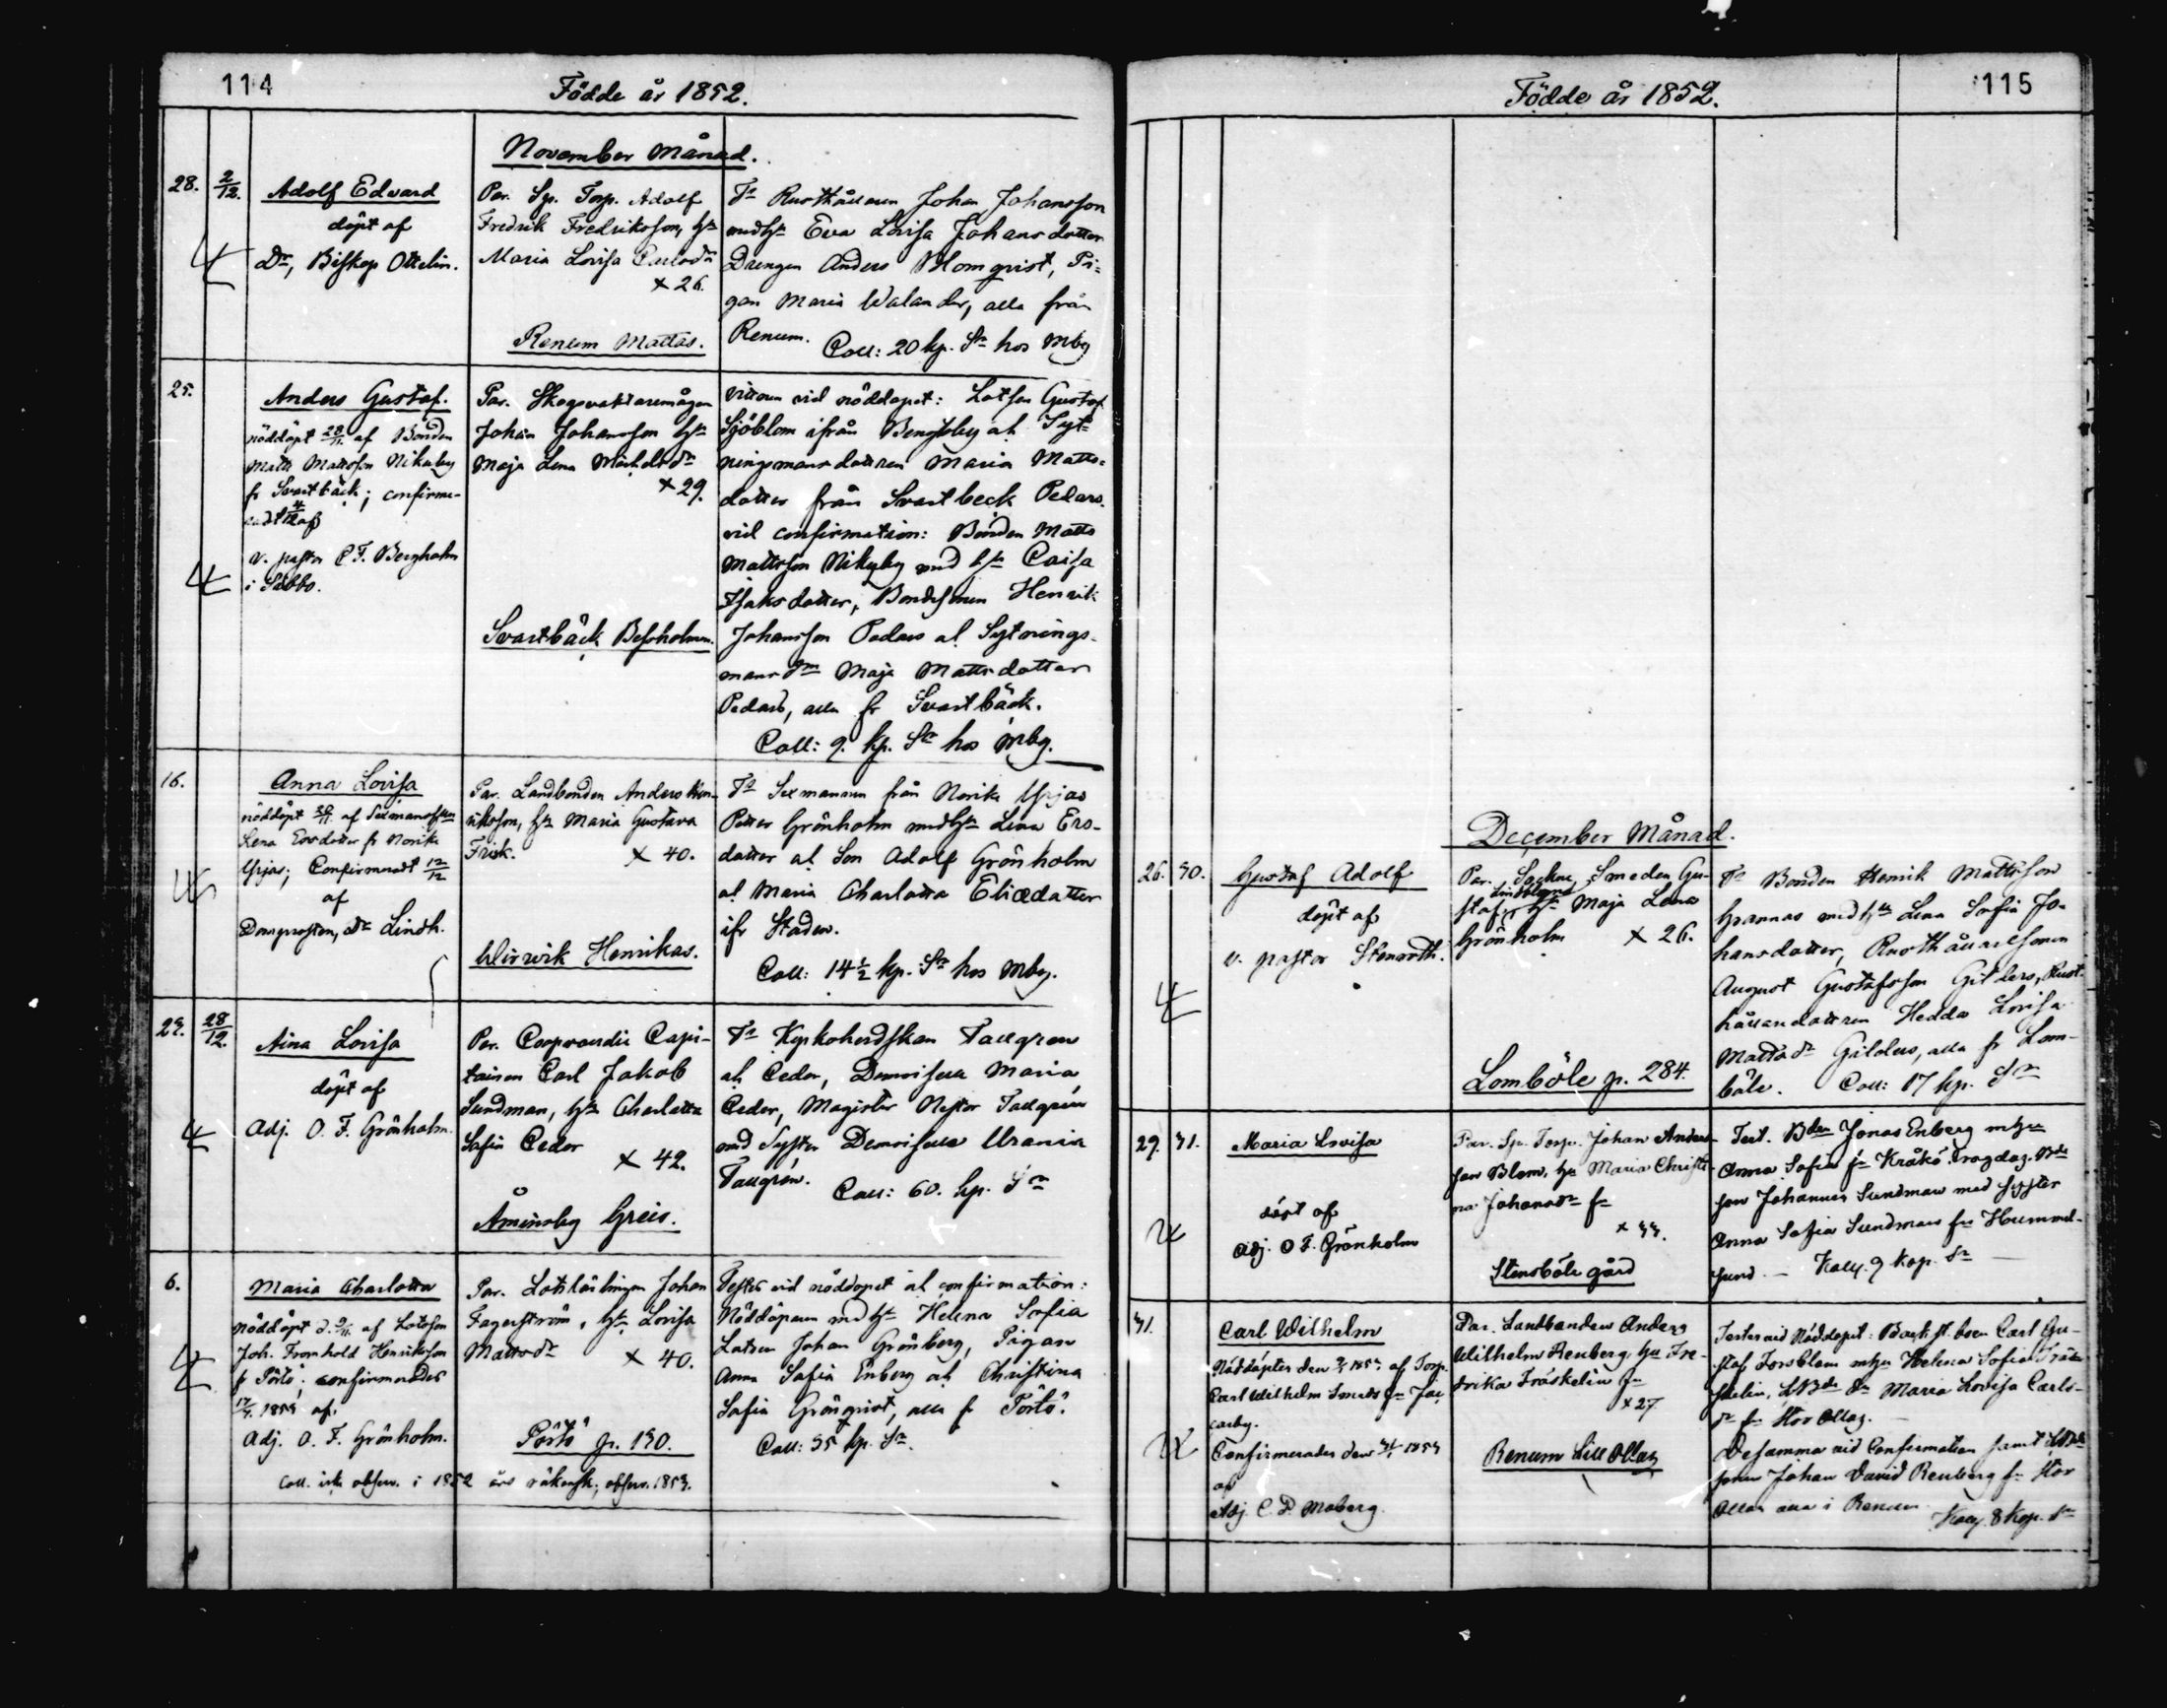 114
Födde år 1852.
November Månad.
28. 2/12. Adolf Edvard
döpt af
Dr, Biskop Ottelin.
Par. Sp. Torp. Adolf
Fredrik Fredriksson, hu
Maria Lovisa Carlsdr
× 26.
Renum Mattas.
Ts Rusthållaren Johan Johansson
med hu Eva Lovisa Johansdotter
Drengen Anders Blomqvist, Pi-
gan Maria Walander, alla från
Renum. Coll: 20 kp. Sr hos Mbg
25. Anders Gustaf.
nöddöpt 28/11 af Bonden
Matts Mattsson Nikuby
fr Svartbäck; confirme-
radt af
v. pastor C. F. Bergholm
i Sibbo.
Par. Skogvaktaremågen
Johan Johansson hu
Maja Lena Michelsdr
× 29.
Svartbäck
vittnen vid nöddopet: Lotsen Gustaf
Sjöblom ifrån Bengtsby och Syt-
ningsmansdottren Maria Matts-
dotter från Svartbeck Pedars.
vid confirmation: Bonden Matts
Mattsson Nikuby med hu Caisa
Isaksdotter, Bondesonen Henrik
Johansson Pedars och Sytnings-
mans Maja Mattsdotter
Pedars, alla fr Svartbäck.
Coll: 9. kp. Sr hos Mbg.
16. Anna Lovisa
nöddöpt af
Lena Ersdotter fr Norike
Yrjas; Confirmeradt 12/12
af
Domprosten, Dr Lindh.
Par. Landbonden Anders Hen-
riksson, hu Maria Gustava
Frisk. × 40.
Wirwik Henrikas.
Ts Sexmannen från Norike Yrjas
Petter Grönholm med hu Lena Ers-
dotter och Son Adolf Grönholm
och Maria Charlotta Eliædotter
ifr Staden.
Coll: 14 1/2 kp. Sr hos Mbg.
28/12. Aina Lovisa
döpt af
Adj. O. F. Grönholm.
Par. Coopvardie Capi-
tainen Carl Jakob
Sundman, hu Charlotta
Sofia Ceder
× 42.
Åminsby Greis.
Ts Kyrkoherdskan Tallgren
och Ceder, Demoisella Maria
Ceder, Magister Nestor Tallgren
med Syster Demoisella Urania
Tallgren. Coll: 60. kp. Sr
6. Maria Charlotta
nöddöpt d. af Lotsen
Joh. Fromhold Henriksson
fr Pörtö; confirmerades
1853 af
Adj. O. F. Grönholm.
Par. Lotslärlingen Johan
Fagerström, hu Lovisa
Mattsdr × 40.
Pörtö p. 130.
Testes vid nöddopet och confirmation:
Nöddöparen med hu Helena Sofia
Lotsen Johan Grönberg, Pigan
Anna Sofia Enberg och Christina
Sofia Grönqvist, alla fr Pörtö.
Coll: 35 kp. Sr.
Coll. icke observ. i 1852 års räkensk; observ. 1853.
Födde år 1852.
115
December Månad.
26. 30. Gustaf Adolf
döpt af
v. pastor Stenroth.
Par. Sockne Smeden Gu-
staf Lindblom hu Maja Lena
Grönholm × 26.
Lomböle p. 284.
Ts Bonden Henrik Mattsson
Grannas med hu Lena Sofia Jo-
hansdotter, Rusthållaresonen
August Gustafsson Gilders, Rust-
hållaredottren Hedda Lovisa
Mattsdr Gilders, alla fr Lom-
böle. Coll: 17 kp. Sr
29. 31. Maria Lovisa
döpt af
Adj. O F. Grönholm
Par. Sp. Torp. Johan Anders-
son Blom, hu Maria Christi-
na Johansdr fr
× 33.
Stensböle gård
Test. Bden Jonas Enberg m hu
Anna Sofia fr Kråkö. Bde
son Johannes Sundman med syster
Anna Sofia Sundman fr Hummel-
sund. — Koll. 9 kop. Sr
31. Carl Wilhelm
Nöddöptes den 1853 af Torp.
Carl Wilhelm fr
Confirmerades den 1853
af
Adj. C. P. Moberg.
Par. Landbonden Anders
Wilhelm Renberg, hu Fre-
drika Fröskelin fr
× 27
Renum Lill Ollas
Testes vid Nöddopet: Carl Gu-
staf Forsblom m hu Helena Sofia
dr Maria Lovisa Carls-
dr fr Stor Ollas.
Desamma vid Confirmation samt
sonen Johan David Renberg fr Stor
Ollas alla i Renum Koll. 8 Kop. Sr